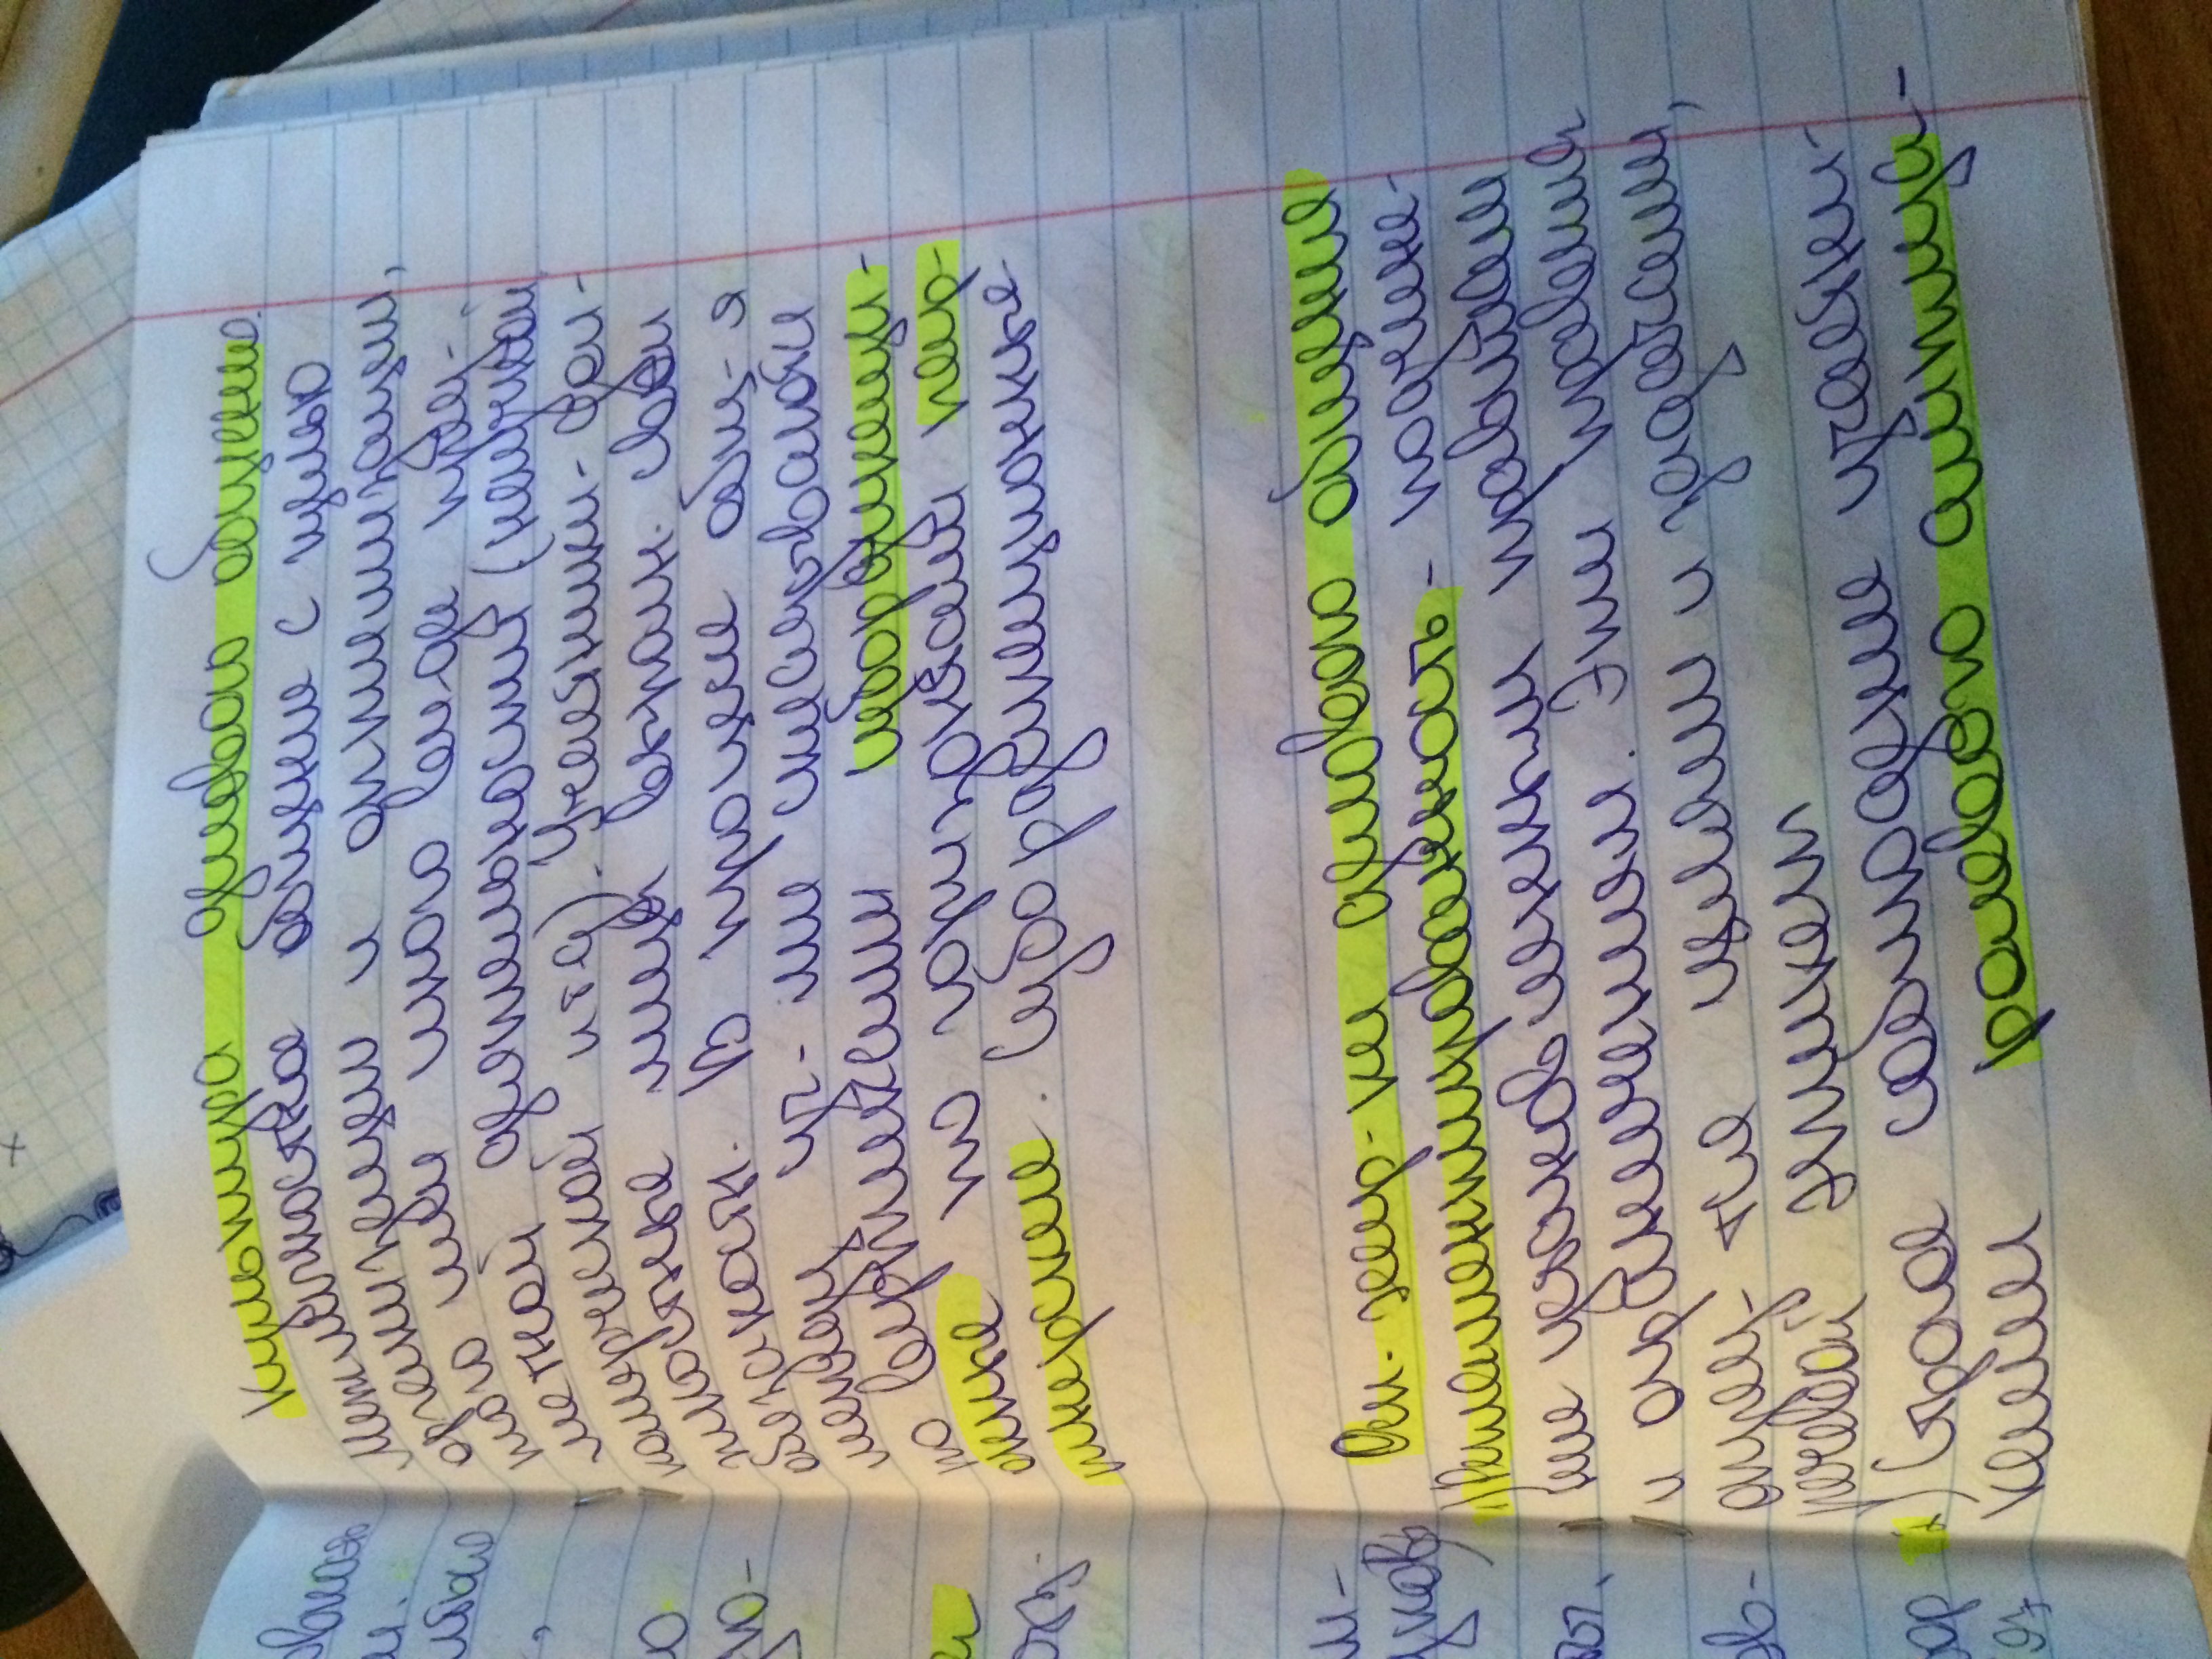 Культура делового общения.
Межличностное общение с целью
организации и оптимизации,
того или иного вида пред-
метной деятельности (научной,
комерческой и т д). Участники - дол-
жностные лица выполн. свои
обязаности. В процессе общ-я
между уч-ми складываются
по вертикали субординаци-
онные по горизонтали парт-
нерские. Субординационные
Осн. хар-ки делового общения
1) Регламентированность - подчине-
ние установленным правилам
и ограничениям. Эти правила
опред-тся целями и задачами,
речевой этикет
2) Строгое соблюдение участни-
ками ролевого амплуа-